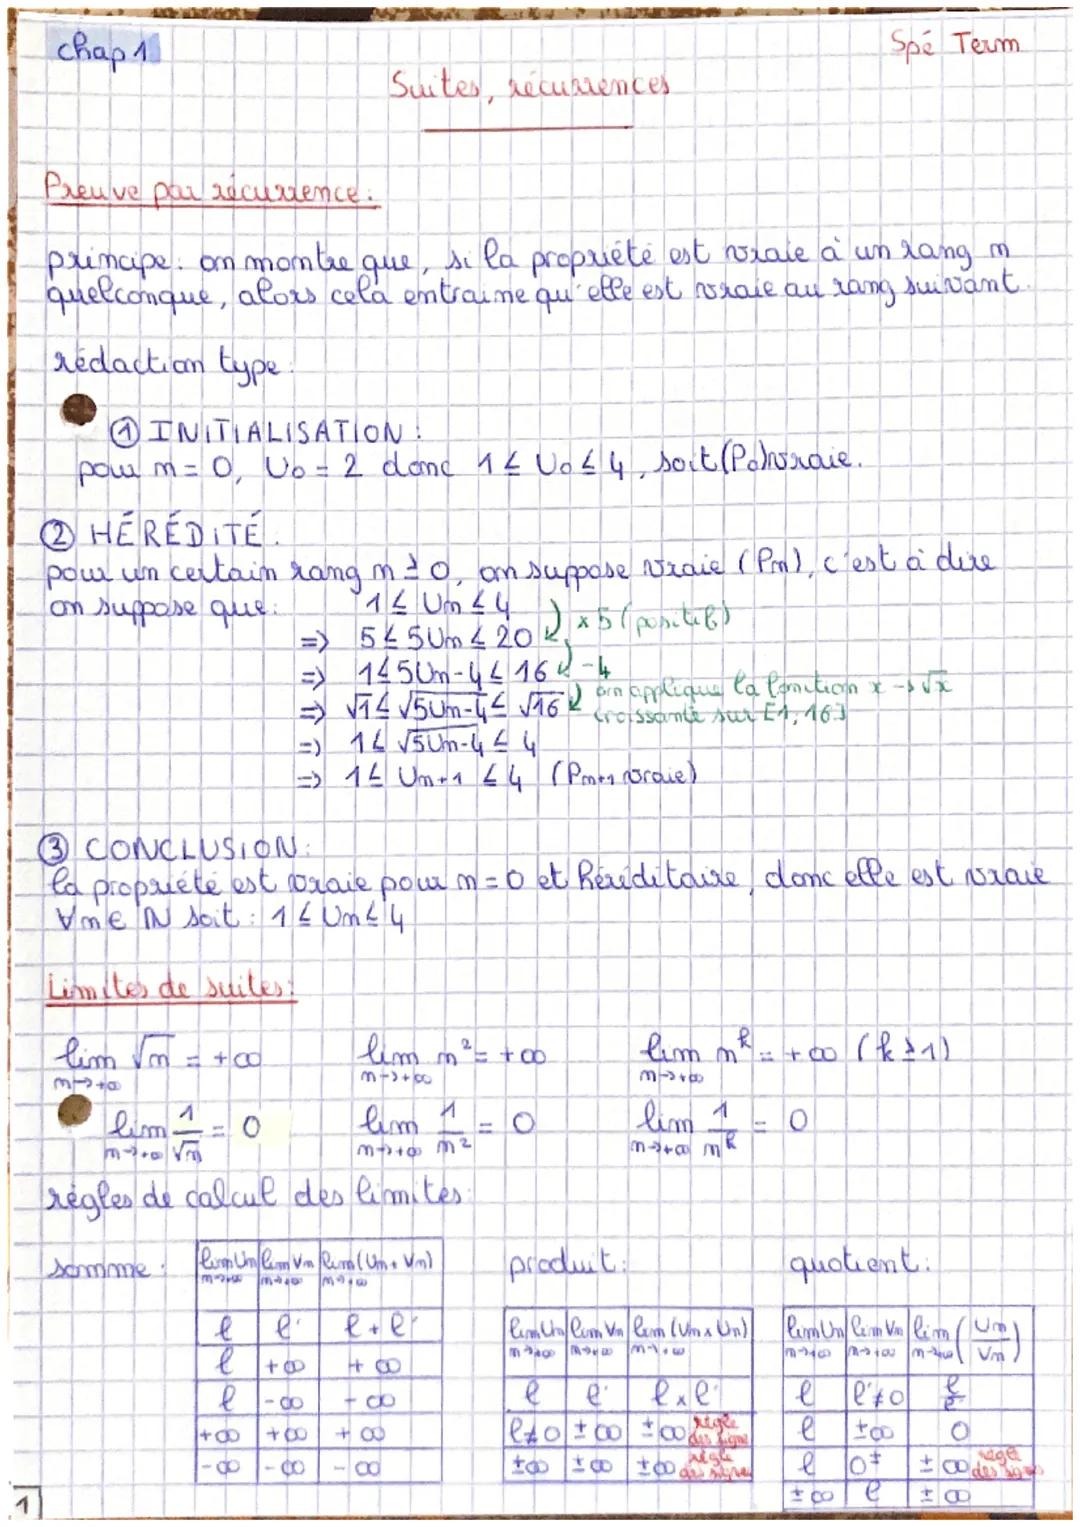 chap 1
Spé Term
Suites, récurrences
Preuve par récurrence:
principe: on montre que, si la propriété est vraie à un rang n
quelconque, alors cela entraine qu'elle est vraie au rang suivant.
rédaction type:
① INITIALISATION:
pour n = 0, U₀ = 2 donc 1 ≤ U₀ ≤ 4, soit (P₀) vraie.
② HÉRÉDITÉ.
pour un certain rang n ≥ 0, on suppose vraie (Pn), c'est à dire
on suppose que: 1 ≤ Un ≤ 4
× 5 (positif)
=> 5 ≤ 5Un ≤ 20
-4
=> 1 ≤ 5Un-4 ≤ 16
on applique la fonction x → √x
=> √1 ≤ √5Un-4 ≤ √16
croissante sur [1, 16]
=> 1 ≤ √5Un-4 ≤ 4
=> 1 ≤ Un+1 ≤ 4 (Pn+1 vraie)
③ CONCLUSION:
la propriété est vraie pour n = 0 et héréditaire, donc elle est vraie
∀n ∈ ℕ soit: 1 ≤ Un ≤ 4
Limites de suites:
lim √n = +∞ lim n² = +∞ lim n^k = +∞ (k ≥ 1)
n→+∞ n→+∞ n→+∞
lim 1/√n = 0 lim 1/n² = 0 lim 1/n^k = 0
n→+∞ n→+∞ n→+∞
règles de calcul des limites:
somme:
lim Un lim Vn lim (Un + Vn)
n→+∞ n→+∞ n→+∞
l l' l + l'
l +∞ +∞
l -∞ -∞
+∞ +∞ +∞
-∞ -∞ -∞
produit:
lim Un lim Vn lim (Un × Un)
n→+∞ n→+∞ n→+∞
l l' l × l'
l≠0 ±∞ ±∞ règle des signe
±∞ ±∞ ±∞ règle des signes
quotient:
lim Un lim Vn lim (Un/Vn)
n→+∞ n→+∞ n→+∞
l l'≠0 l/l'
l ±∞ 0
l 0± ±∞ règle des signes
±∞ l ±∞
1